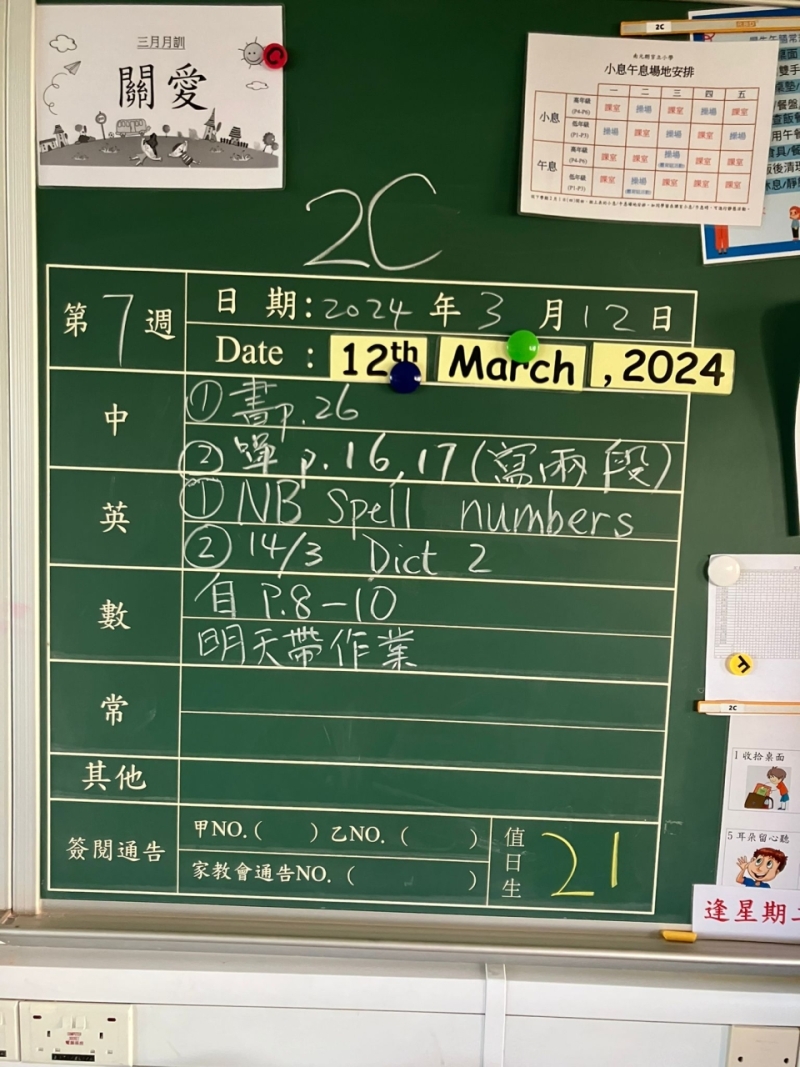 三月月訓
關愛
2C
小息午息場地安排
一 二 三 四 五
小息
高年級 (P4-P6) 課室 操場 課室 操場 課室
低年級 (P1-P3) 操場 課室 操場 課室 操場
午息
高年級 (P4-P6) 課室 課室 操場 課室 課室
低年級 課室 操場 課室 課室 課室
2C
第7週
日期:2024年3月12日
Date : 12th March , 2024
中
①書p.26
②單p.16,17(寫兩段)
英
①NB Spell numbers
②14/3 Dict 2
數
自P.8-10
明天帶作業
常
其他
簽閱通告
甲NO.( ) 乙NO. ( )
家教會通告NO. ( )
值日生
21
2C
1 收拾桌面
5 耳朵留心聽
逢星期